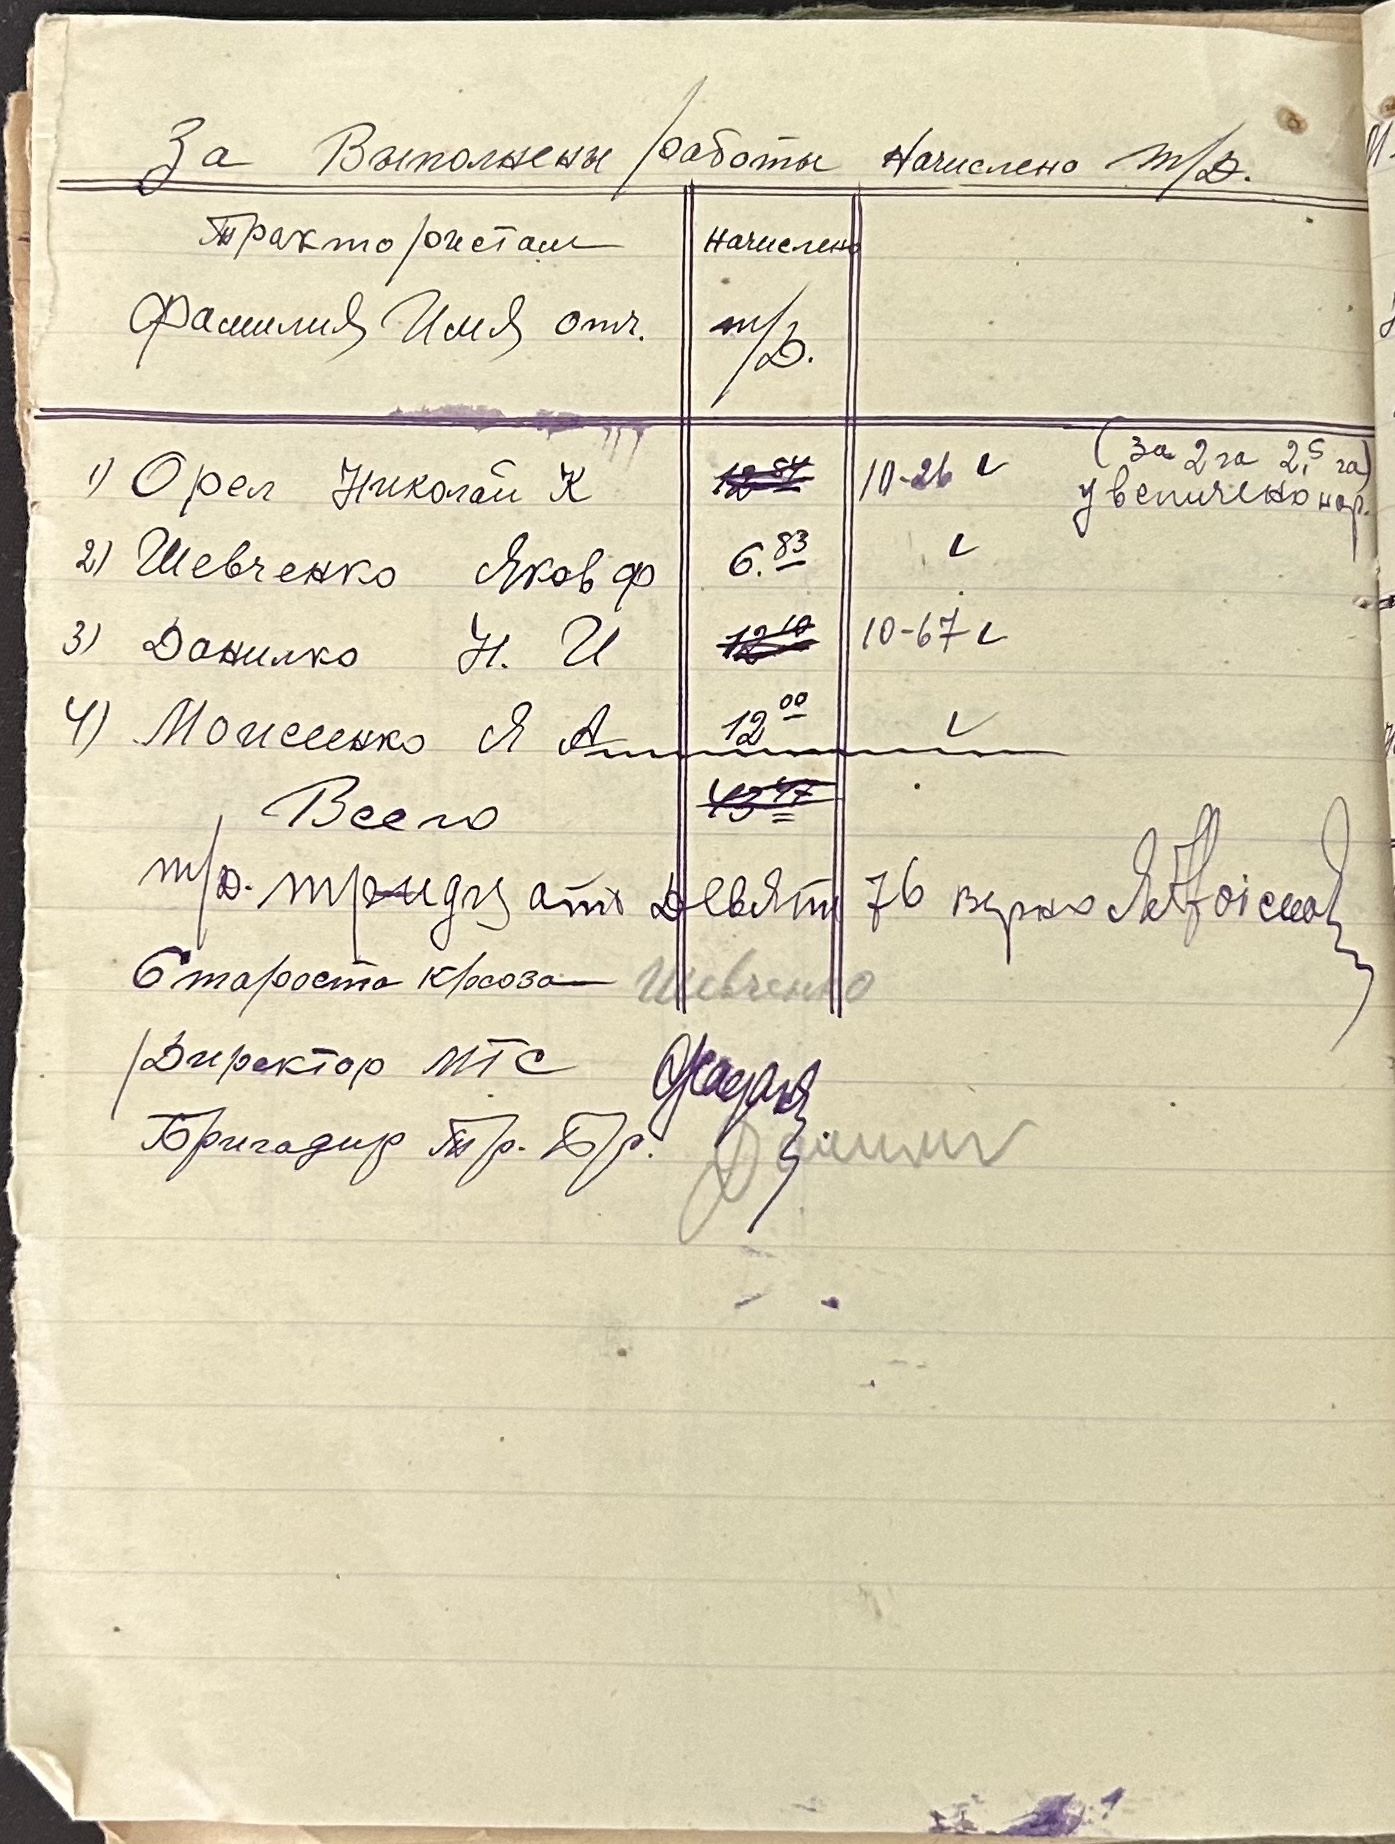 За Выполнены работы Начислено т/д.
Трактористам начислено
Фамилия Имя отч. т/д.
1) Орел Николай К 12 84 10-26 (За 2 га 2,5 га)
увеличено нор.
2) Шевченко Яков Ф 6.83
3) Данилко Н. И 12 10 10-67
4) Моисеенко Я А 12 00
Всего 43 47
т/д. тридцать Девять 76 верно
Староста Шевченко
Директор МТС
Бригадир Тр. Бр.